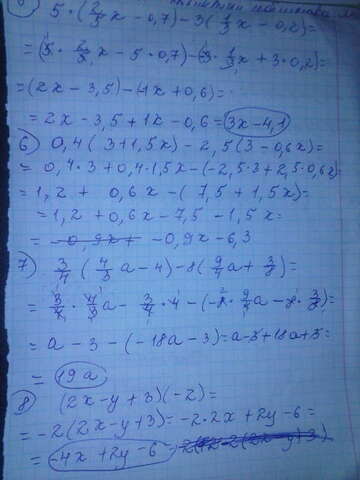 5 · (2/5x - 0,7) - 3(1/3x - 0,2) =
= (5 · 2/5x - 5 · 0,7) - (3 · 1/3x + 3 · 0,2) =
= (2x - 3,5) - (1x + 0,6) =
= 2x - 3,5 + 1x - 0,6 = 3x - 4,1
6) 0,4(3 + 1,5x) - 2,5(3 - 0,6x) =
= 0,4 · 3 + 0,4 · 1,5x - (-2,5 · 3 + 2,5 · 0,6x) =
= 1,2 + 0,6x - (7,5 + 1,5x) =
= 1,2 + 0,6x - 7,5 - 1,5x =
= -0,9x - 6,3
7) 3/4(4/3a - 4) - 8(9/4a + 3/8) =
= 3/4 · 4/3a - 3/4 · 4 - (-8 · 9/4a - 8 · 3/8) =
= a - 3 - (-18a - 3) = a - 3 + 18a + 3 =
= 19a
8) (2x - y + 3)(-2) =
= -2(2x - y + 3) = -2 · 2x + 2y - 6 =
= -4x + 2y - 6